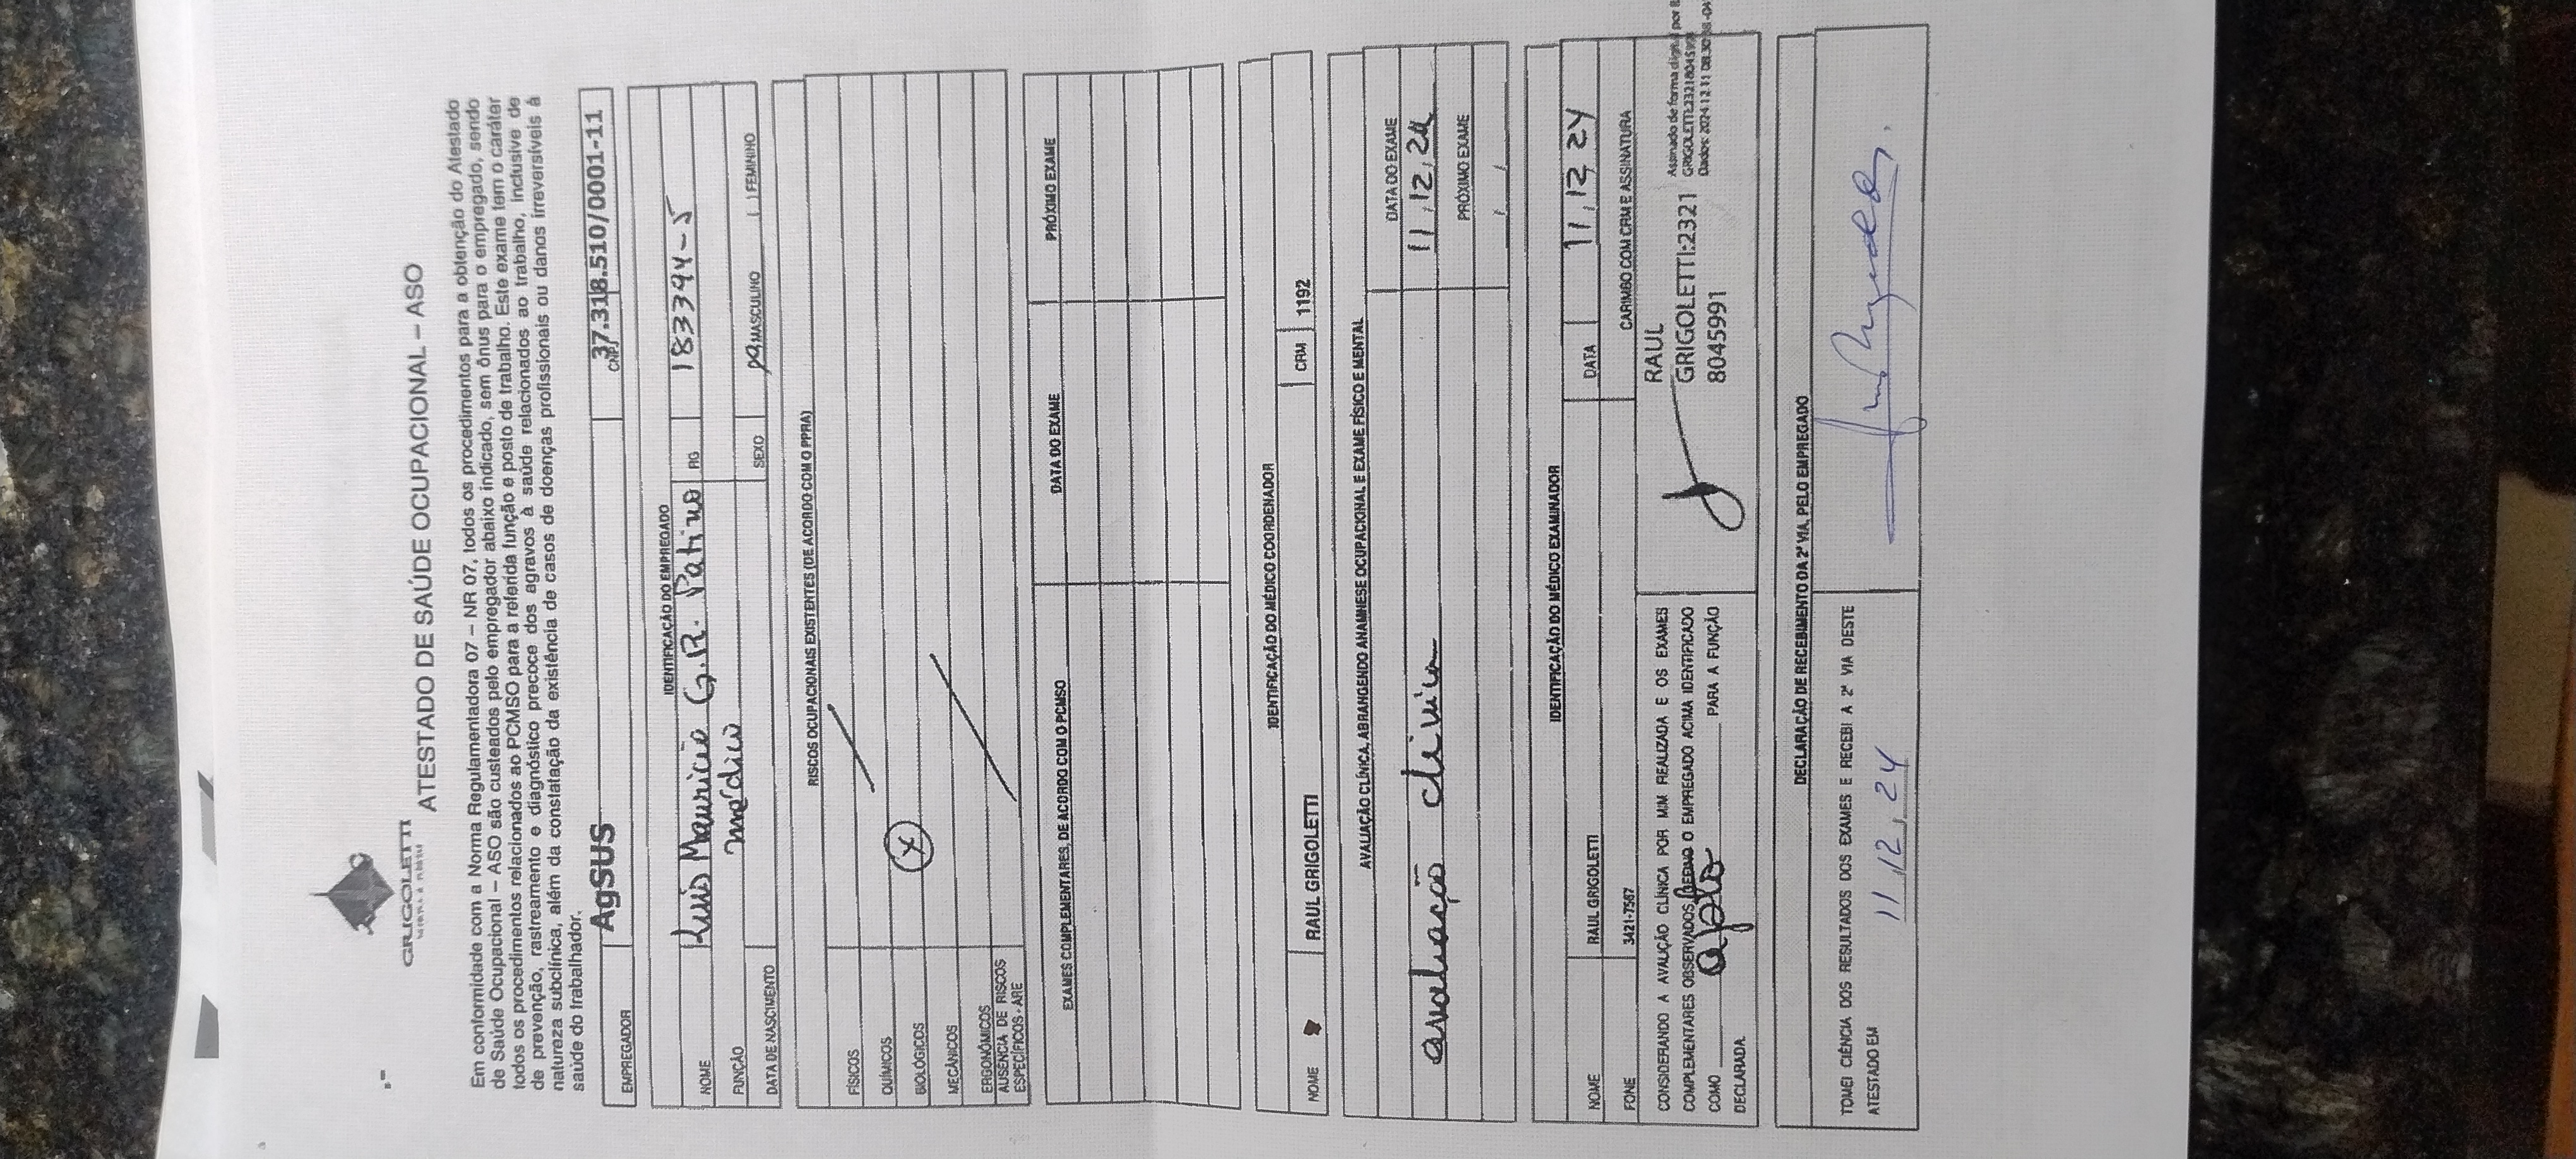 GRIGOLETTI
ATESTADO DE SAÚDE OCUPACIONAL – ASO
Em conformidade com a Norma Regulamentadora 07 – NR 07, todos os procedimentos para a obtenção do Atestado
de Saúde Ocupacional – ASO são custeados pelo empregador abaixo indicado, sem ônus para o empregado, sendo
todos os procedimentos relacionados ao PCMSO para a referida função e posto de trabalho. Este exame tem o caráter
de prevenção, rastreamento e diagnóstico precoce dos agravos à saúde relacionados ao trabalho, inclusive de
natureza subclínica, além da constatação da existência de casos de doenças profissionais ou danos irreversíveis à
saúde do trabalhador.
EMPREGADOR AgSUS CNPJ 37.318.510/0001-11
IDENTIFICAÇÃO DO EMPREGADO
NOME Luis Mauricio G.R. Patino RG 183394-5
FUNÇÃO médico
DATA DE NASCIMENTO SEXO (X) MASCULINO ( ) FEMININO
RISCOS OCUPACIONAIS EXISTENTES (DE ACORDO COM O PPRA)
FÍSICOS
QUÍMICOS
BIOLÓGICOS X
MECÂNICOS
ERGONÔMICOS
AUSÊNCIA DE RISCOS
ESPECÍFICOS - ARE
EXAMES COMPLEMENTARES, DE ACORDO COM O PCMSO DATA DO EXAME PRÓXIMO EXAME
IDENTIFICAÇÃO DO MÉDICO COORDENADOR
NOME RAUL GRIGOLETTI CRM 1192
AVALIAÇÃO CLÍNICA, ABRANGENDO ANAMNESE OCUPACIONAL E EXAME FÍSICO E MENTAL
DATA DO EXAME
avaliação clínica 11,12,24
PRÓXIMO EXAME
/ /
IDENTIFICAÇÃO DO MÉDICO EXAMINADOR
NOME RAUL GRIGOLETTI DATA 11,12 24
FONE 3421-7567 CARIMBO COM CRM E ASSINATURA
CONSIDERANDO A AVALIÇÃO CLÍNICA POR MIM REALIZADA E OS EXAMES
COMPLEMENTARES OBSERVADOS, DEFINO O EMPREGADO ACIMA IDENTIFICADO
COMO apto PARA A FUNÇÃO
DECLARADA.
RAUL
GRIGOLETTI:2321
8045991
Assinado de forma digital por
GRIGOLETTI:23218045991
Dados: 2024.12.11
DECLARAÇÃO DE RECEBIMENTO DA 2ª VIA, PELO EMPREGADO
TOMEI CIÊNCIA DOS RESULTADOS DOS EXAMES E RECEBI A 2ª VIA DESTE
ATESTADO EM 11,12,24